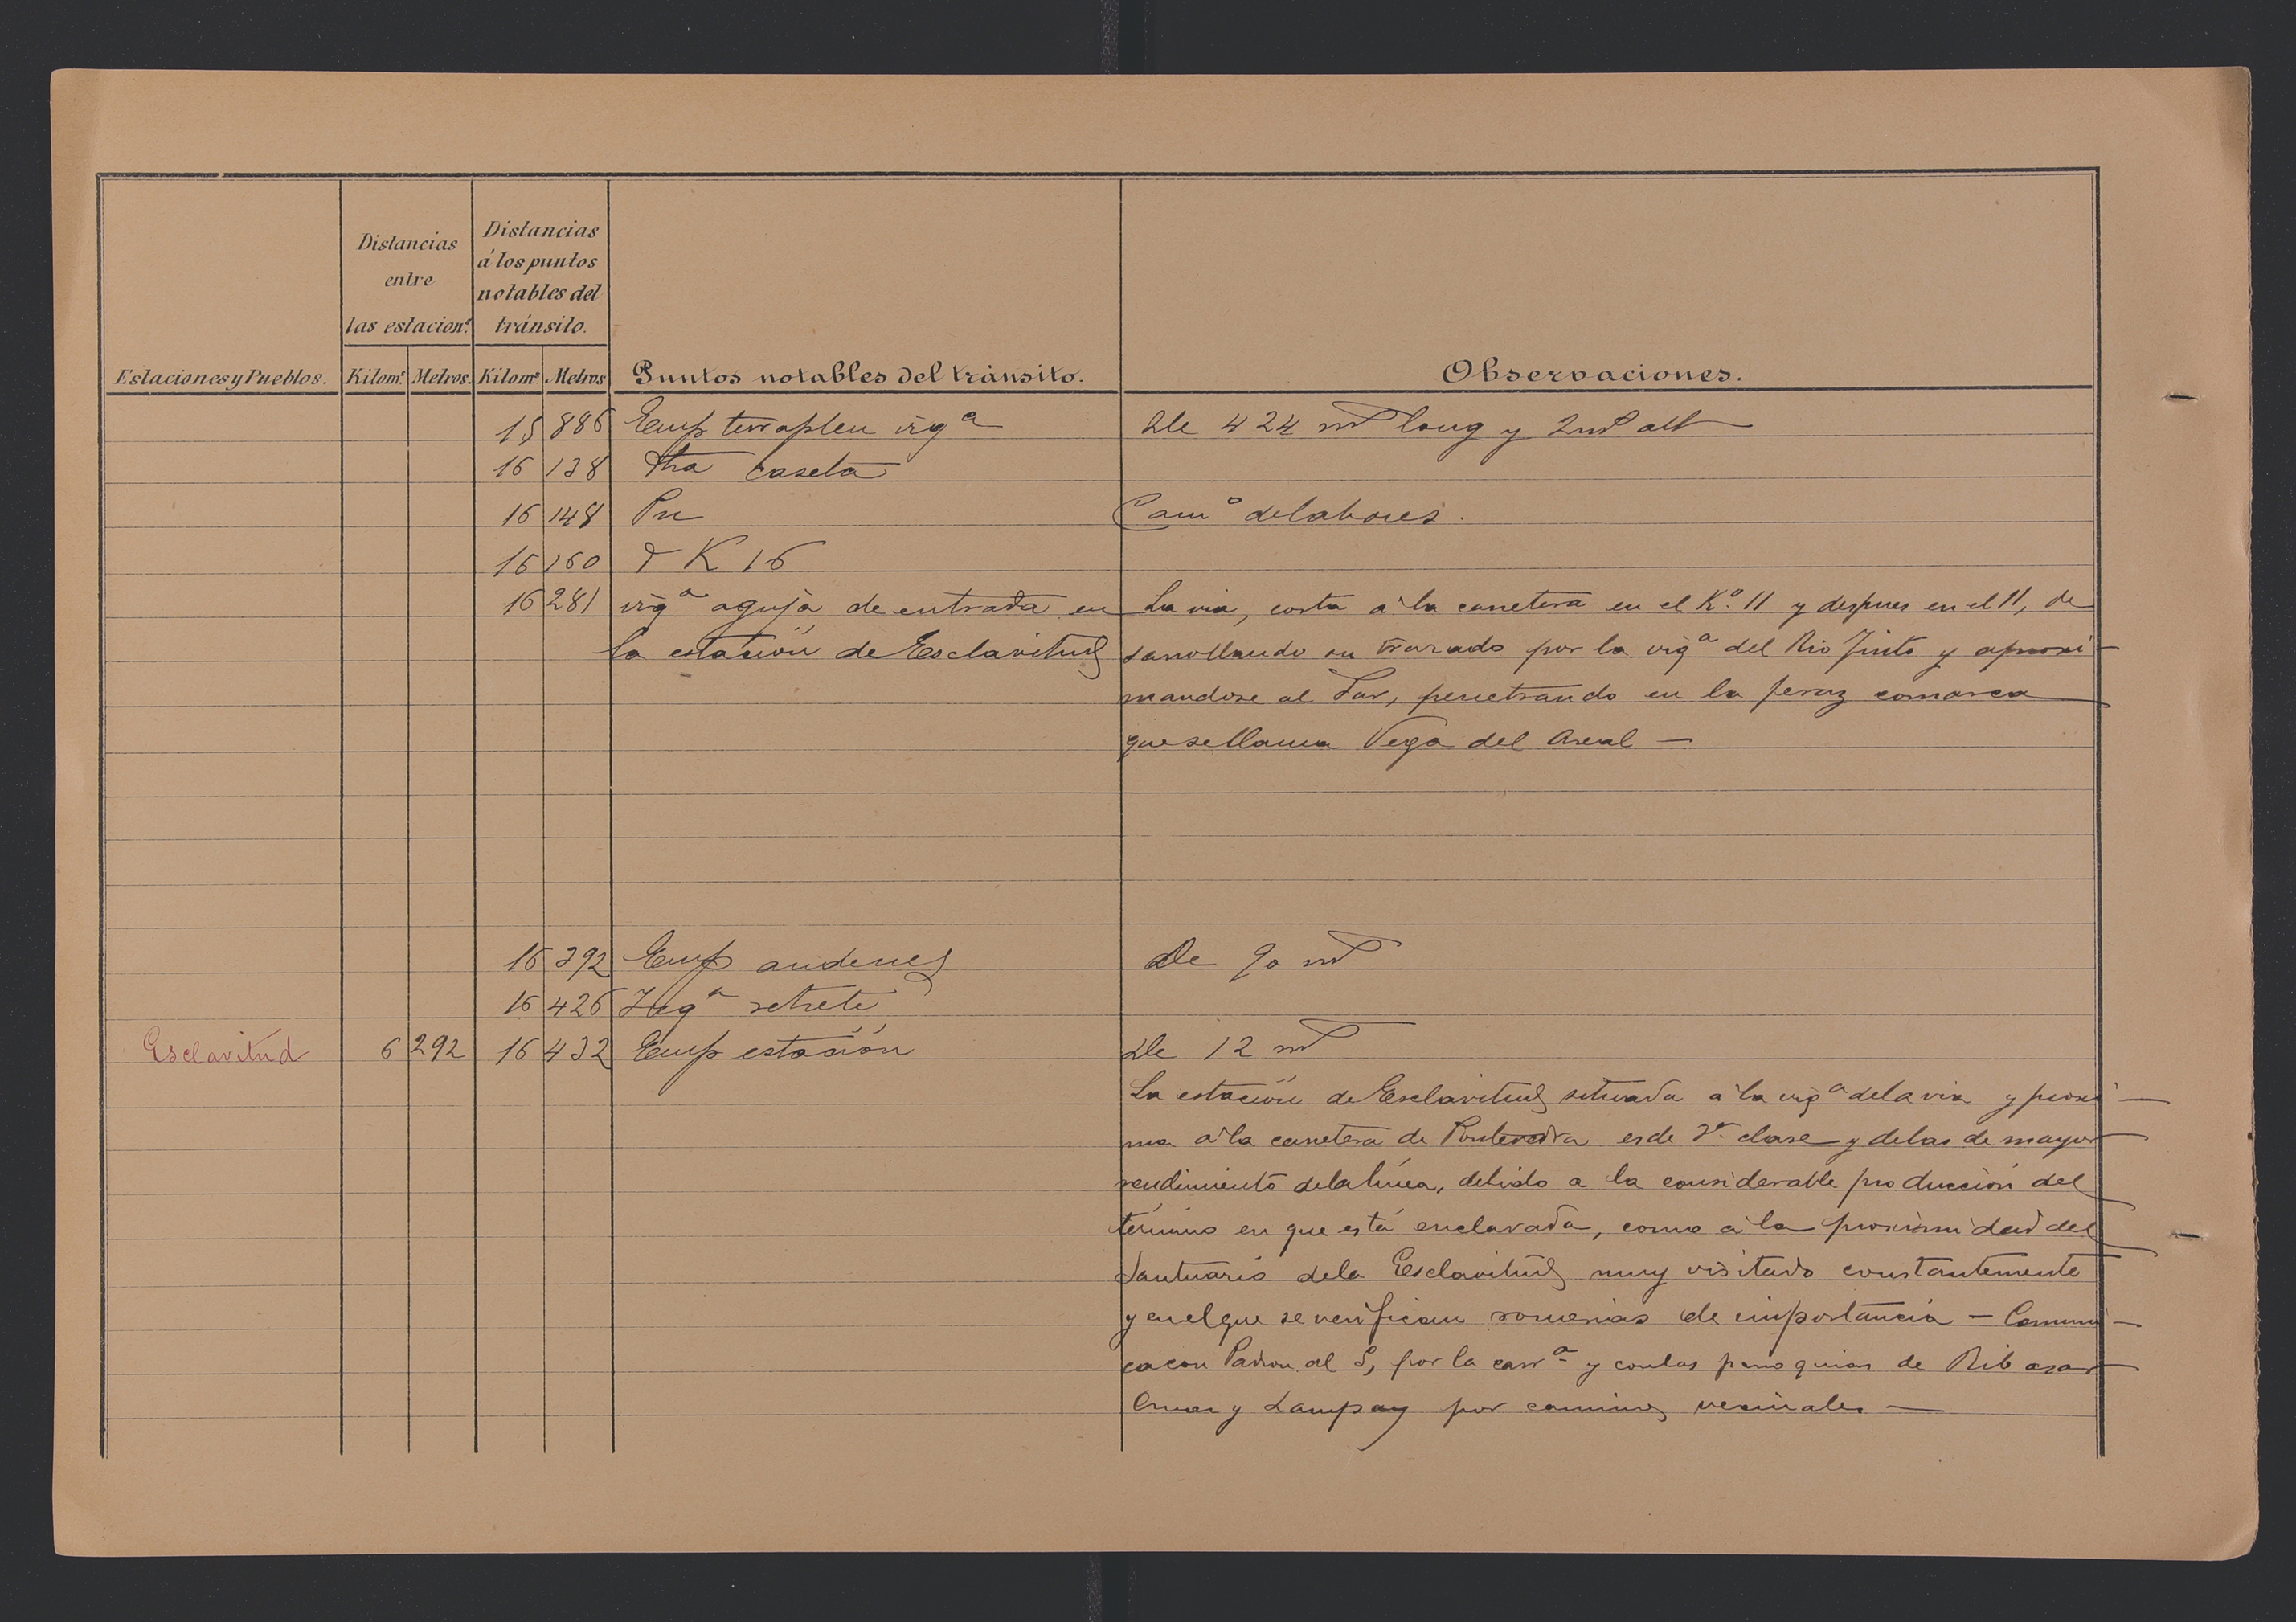 Estaciones y Pueblos.
Distancias
entre
las estacion.ˢ
Kilom.ˢ Metros.
Distancias
á los puntos
notables del
tránsito.
Kilom.ˢ Metros
Puntos notables del tránsito.
Observaciones.
15 886 Emp terraplen izqª De 424 mˢ long y 2 mˢ alt
16 138 caseta
16 148 Pn Camº de labores.
16 160 K 16
16 281 izqª aguja de entrada en La via, corta á la carretera en el Kº. 11 y despues en el 11, de
la estación de Esclavitud sarrollando su trazado por la izqª del Rio Tinto y aproxi-
mandose al Sar, penetrando en la feraz comarca
que se llama Vega del Areal —
16 392 Emp andenes De 90 mˢ
16 426 Izqª retrete
Esclavitud 6 292 16 432 Emp estación De 12 mˢ
La estación de Esclavitud situada á la izqª de la via y proxi-
ma á la carretera de Pontevedra es de 3ª. clase y de las de mayor
rendimiento de la línea, debido a la considerable producción del
término en que está enclavada, como á la proximidad del
Santuario de la Esclavitud muy visitado constantemente
y en el que se verifican romerias de importancia — Comuni-
ca con Padron al S, por la carrª y con las parroquias de Ribasar
Cruces y Lampay por caminos vecinales —